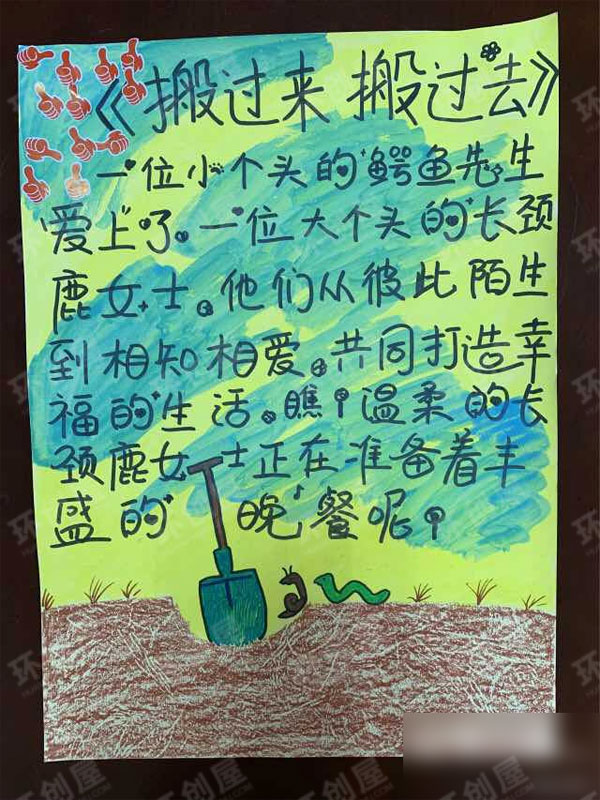 《搬过来 搬过去》
一位小个头的鳄鱼先生
爱上了。一位大个头的长颈
鹿女士。他们从彼此陌生
到相知相爱。共同打造幸
福的生活。瞧！温柔的长
颈鹿女士正在准备着丰
盛的晚餐呢！
环创屋